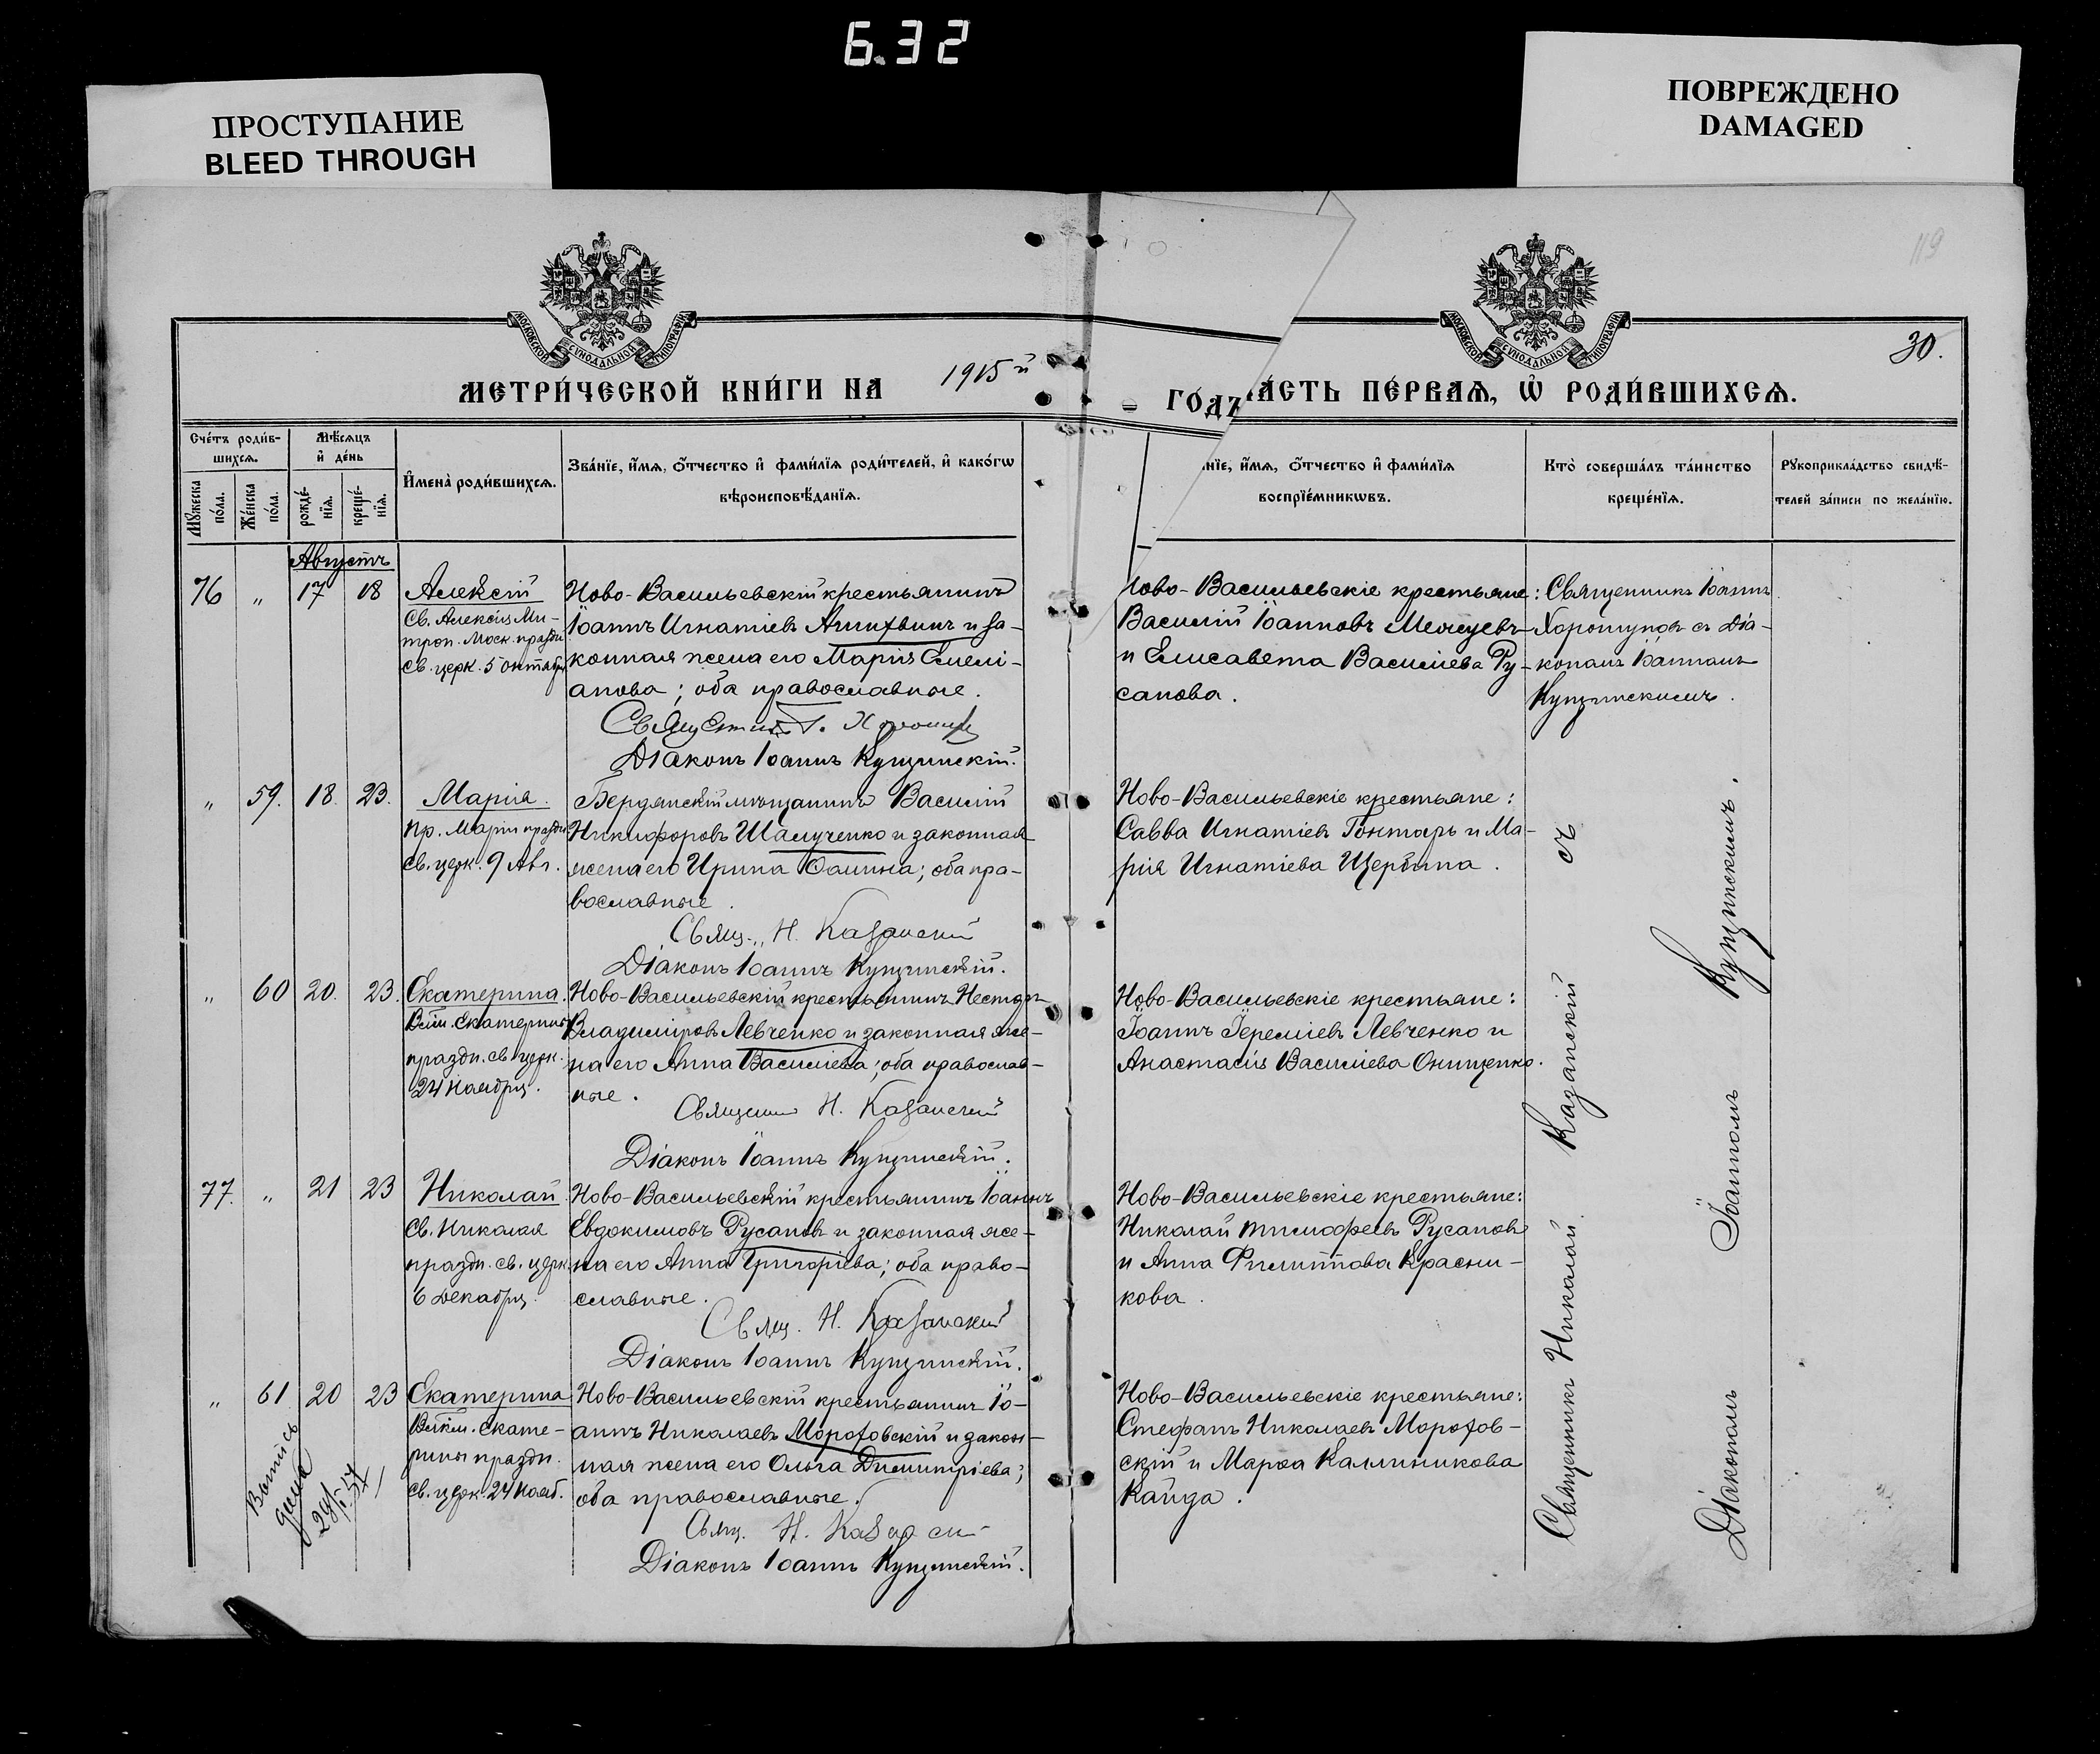 6.32
ПРОСТУПАНИЕ
BLEED THROUGH
ПОВРЕЖДЕНО
DAMAGED
119
МОСКОВСКОЙ СѴНОДАЛЬНОЙ ТИПОГРАФІИ
МОСКОВСКОЙ СѴНОДАЛЬНОЙ ТИПОГРАФІИ
30.
МЕТРИ́ЧЕСКОЙ КНИ́ГИ НА 1915й ГО́ДЪ
А́СТЬ ПЕ́РВАѦ, Ѡ҆ РОДИ́ВШИХСѦ.
Сче́тъ роди́в-
шихсѧ.
Мѣ́сѧцъ
и҆ де́нь
Мꙋ́жеска
по́ла.
Же́нска
по́ла.
рожде́-
нїѧ.
креще́-
нїѧ.
И҆мена̀ роди́вшихсѧ.
Зва́нїе, и҆́мѧ, ѻ҆́тчество и҆ фами́лїѧ роди́телей, и҆ како́гѡ
вѣроисповѣ́данїѧ.
нїе, и҆́мѧ, ѻ҆́тчество и҆ фами́лїѧ
воспрїе́мникѡвъ.
Кто̀ соверша́лъ та́инство
креще́нїѧ.
Рꙋкоприкла́дство свидѣ́-
телей за́писи по жела́нїю.
Августъ
76 „ 17 18 Алексій
Св. Алексія Ми-
троп. Моск. праздн.
св. церк. 5 октября
Ново-Васильевскій крестьянинъ
Іоаннъ Игнатіевъ и за-
конная жена его Марія Емелі-
анова; оба православные.
Діаконъ Іоаннъ Кущинскій.
Ново-Васильевскіе крестьяне:
Василій Іоанновъ
и Елисавета Василіева Ру-
санова.
Священникъ Іоаннъ
Хорошуновъ съ Діа-
кономъ Іоанномъ
Кущинскимъ.
„ 59. 18. 23. Марія.
Пр. Маріи праздн.
св. церк. 9 Авг.
Бердянскій мѣщанинъ Василій
Никифоровъ Шамученко и законная
жена его Ирина Фомина; оба пра-
вославные.
Свящ. Н. Казанскій
Діаконъ Іоаннъ Кущинскій.
Ново-Васильевскіе крестьяне:
Савва Игнатіевъ Гонтарь и Ма-
рія Игнатіева Щербина.
„ 60 20. 23. Екатерина.
Влм. Екатерины
праздн. св. церк.
24 Ноября.
Ново-Васильевскій крестьянинъ Несторъ
Владиміровъ Левченко и законная же-
на его Анна Василіева; оба православ-
ные.
Священн. Н. Казанскій
Діаконъ Іоаннъ Кущинскій.
Ново-Васильевскіе крестьяне:
Іоаннъ Іереміевъ Левченко и
Анастасія Василіева Онищенко.
77. „ 21 23 Николай
Св. Николая
праздн. св. церк.
6 Декабря.
Ново-Васильевскій крестьянинъ Іоаннъ
Евдокимовъ Русановъ и законная же-
на его Анна Григоріева; оба право-
славные.
Свящ. Н. Казанскій
Діаконъ Іоаннъ Кущинскій.
Ново-Васильевскіе крестьяне:
Николай Тимофеевъ Русановъ
и Анна Филиппова Красни-
кова.
„ 61 20 23 Екатерина
Влкм. Екате-
рины праздн.
св. церк. 24 Нояб.
Ново-Васильевскій крестьянинъ Іо-
аннъ Николаевъ Мороховскій и закон-
ная жена его Ольга Димитріева;
оба православные.
Свящ. Н. Казанскій
Діаконъ Іоаннъ Кущинскій.
Ново-Васильевскіе крестьяне:
Стефанъ Николаевъ Морохов-
скій и Марѳа Каллиникова
Кайда.
Священникъ Николай Казанскій съ
Діакономъ Іоанномъ Кущинскимъ.